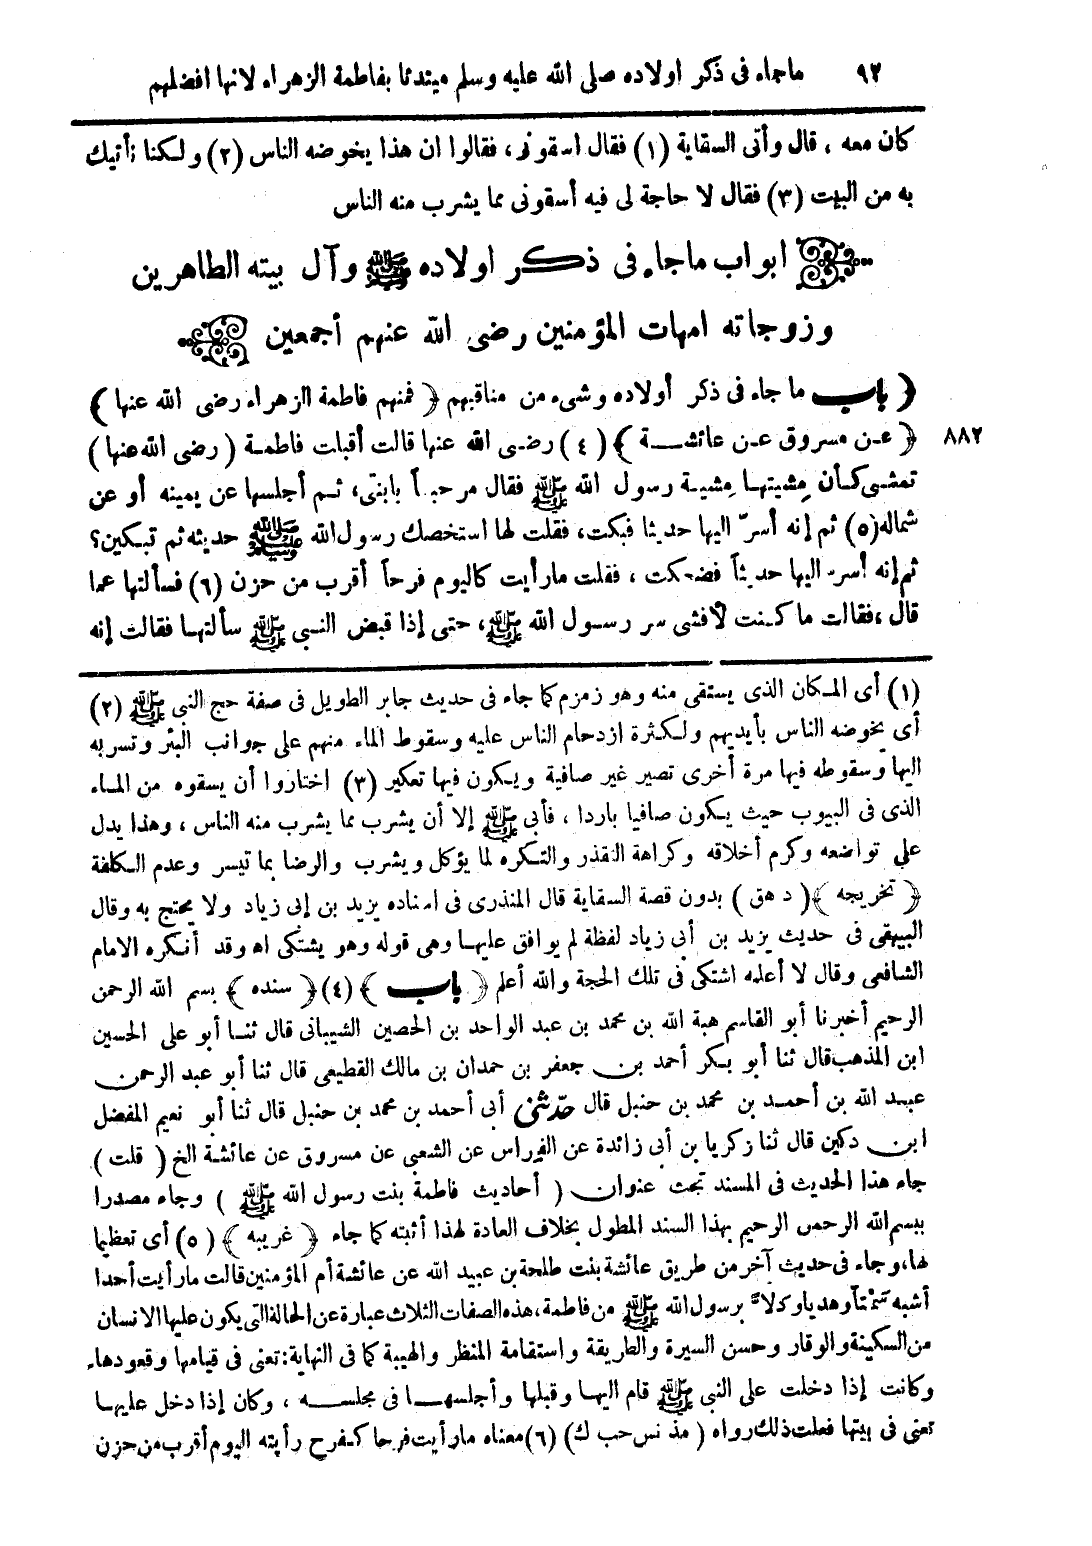 ٩٢ ماجاء فى ذكر اولاده صلى الله عليه وسلم مبتدئا بفاطمة الزهراء لانها افضلهم
كان معه ، قال وأتى السقاية (١) فقال اسقونى ، فقالوا ان هذا يخوضه الناس (٢) ولكنا نأتيك
به من البيت (٣) فقال لا حاجة لى فيه أسقونى مما يشرب منه الناس
ابواب ماجاء فى ذكر اولاده ﷺ وآل بيته الطاهرين
وزوجاته امهات المؤمنين رضى الله عنهم أجمعين
﴿ باب ما جاء فى ذكر أولاده وشىء من مناقبهم ﴿ فمنهم فاطمة الزهراء رضى الله عنها ﴾
٨٨٢ ﴿ عن مسروق عن عائشة ﴾ (٤) رضى الله عنها قالت أقبلت فاطمة ( رضى الله عنها )
تمشى كأن مِشيتها مِشية رسول الله ﷺ فقال مرحباً بابنتى، ثم أجلسها عن يمينه أو عن
شماله(٥) ثم إنه أسرّ اليها حديثا فبكت، فقلت لها استخصك رسول الله ﷺ حديثه ثم تبكين؟
ثم إنه أسر اليها حديثاً فضحكت ، فقلت مارأيت كاليوم فرحاً أقرب من حزن (٦) فسألتها عما
قال ،فقالت ما كنت لأفشى سر رسول الله ﷺ، حتى إذا قبض النبى ﷺ سألتها فقالت إنه
(١) أى المكان الذى يستقى منه وهو زمزم كما جاء فى حديث جابر الطويل فى صفة حج النبى ﷺ (٢)
أى يخوضه الناس بأيديهم ولكثرة ازدحام الناس عليه وسقوط الماء منهم على جوانب البئر وتسربه
اليها وسقوطه فيها مرة أخرى تصير غير صافية ويكون فيها تعكير (٣) اختاروا أن يسقوه من الماء
الذى فى البيوب حيث يكون صافيا باردا ، فأبى ﷺ إلا أن يشرب مما يشرب منه الناس ، وهذا يدل
على تواضعه وكرم أخلاقه وكراهة التقذر والتكره لما يؤكل ويشرب والرضا بما تيسر وعدم الكلفة
﴿ تخريجه ﴾( د هق ) بدون قصة السقاية قال المنذرى فى اسناده يزيد بن إبى زياد ولا يحتج به وقال
البيهقى فى حديث يزيد بن أبى زياد لفظة لم يوافق عليها وهى قوله وهو يشتكى اه وقد أنكره الامام
الشافعى وقال لا أعلمه اشتكى فى تلك الحجة والله أعلم ﴿ باب ﴾ (٤)﴿ سنده ﴾ بسم الله الرحمن
الرحيم أخبرنا أبو القاسم هبة الله بن محمد بن عبد الواحد بن الحصين الشيبانى قال ثنا أبو على الحسين
ابن المذهب قال ثنا أبو بكر أحمد بن جعفر بن حمدان بن مالك القطيعى قال ثنا أبو عبد الرحمن
عبد الله بن أحمد بن محمد بن حنبل قال حدثنى أبى أحمد بن محمد بن حنبل قال ثنا أبو نعيم المفضل
ابن دكين قال ثنا زكريا بن أبى زائدة عن الفراس عن الشعبى عن مسروق عن عائشة الخ ( قلت )
جاء هذا الحديث فى المسند تحت عنوان ( أحاديث فاطمة بنت رسول الله ﷺ ) وجاء مصدرا
ببسم الله الرحمن الرحيم بهذا السند المطول بخلاف العادة لهذا أثبته كما جاء ﴿ غريبه ﴾ (٥) أى تعظيما
لها، وجاء فى حديث آخر من طريق عائشة بنت طلحة بن عبيد الله عن عائشة أم المؤمنين قالت مارأيت أحدا
أشبه سَمْتاً وهديا ودلاً برسول الله ﷺ من فاطمة، هذه الصفات الثلاث عبارة عن الحالة التى يكون عليها الانسان
من السكينة والوقار وحسن السيرة والطريقة واستقامة المنظر والهيبة كما فى النهاية: تعنى فى قيامها وقعودها،
وكانت إذا دخلت على النبى ﷺ قام اليها وقبلها وأجلسها فى مجلسه ، وكان إذا دخل عليها
تعنى فى بيتها فعلت ذلك رواه ( مذ نس حب ك) (٦) معناه مارأيت فرحا كفرح رأيته اليوم أقرب من حزن